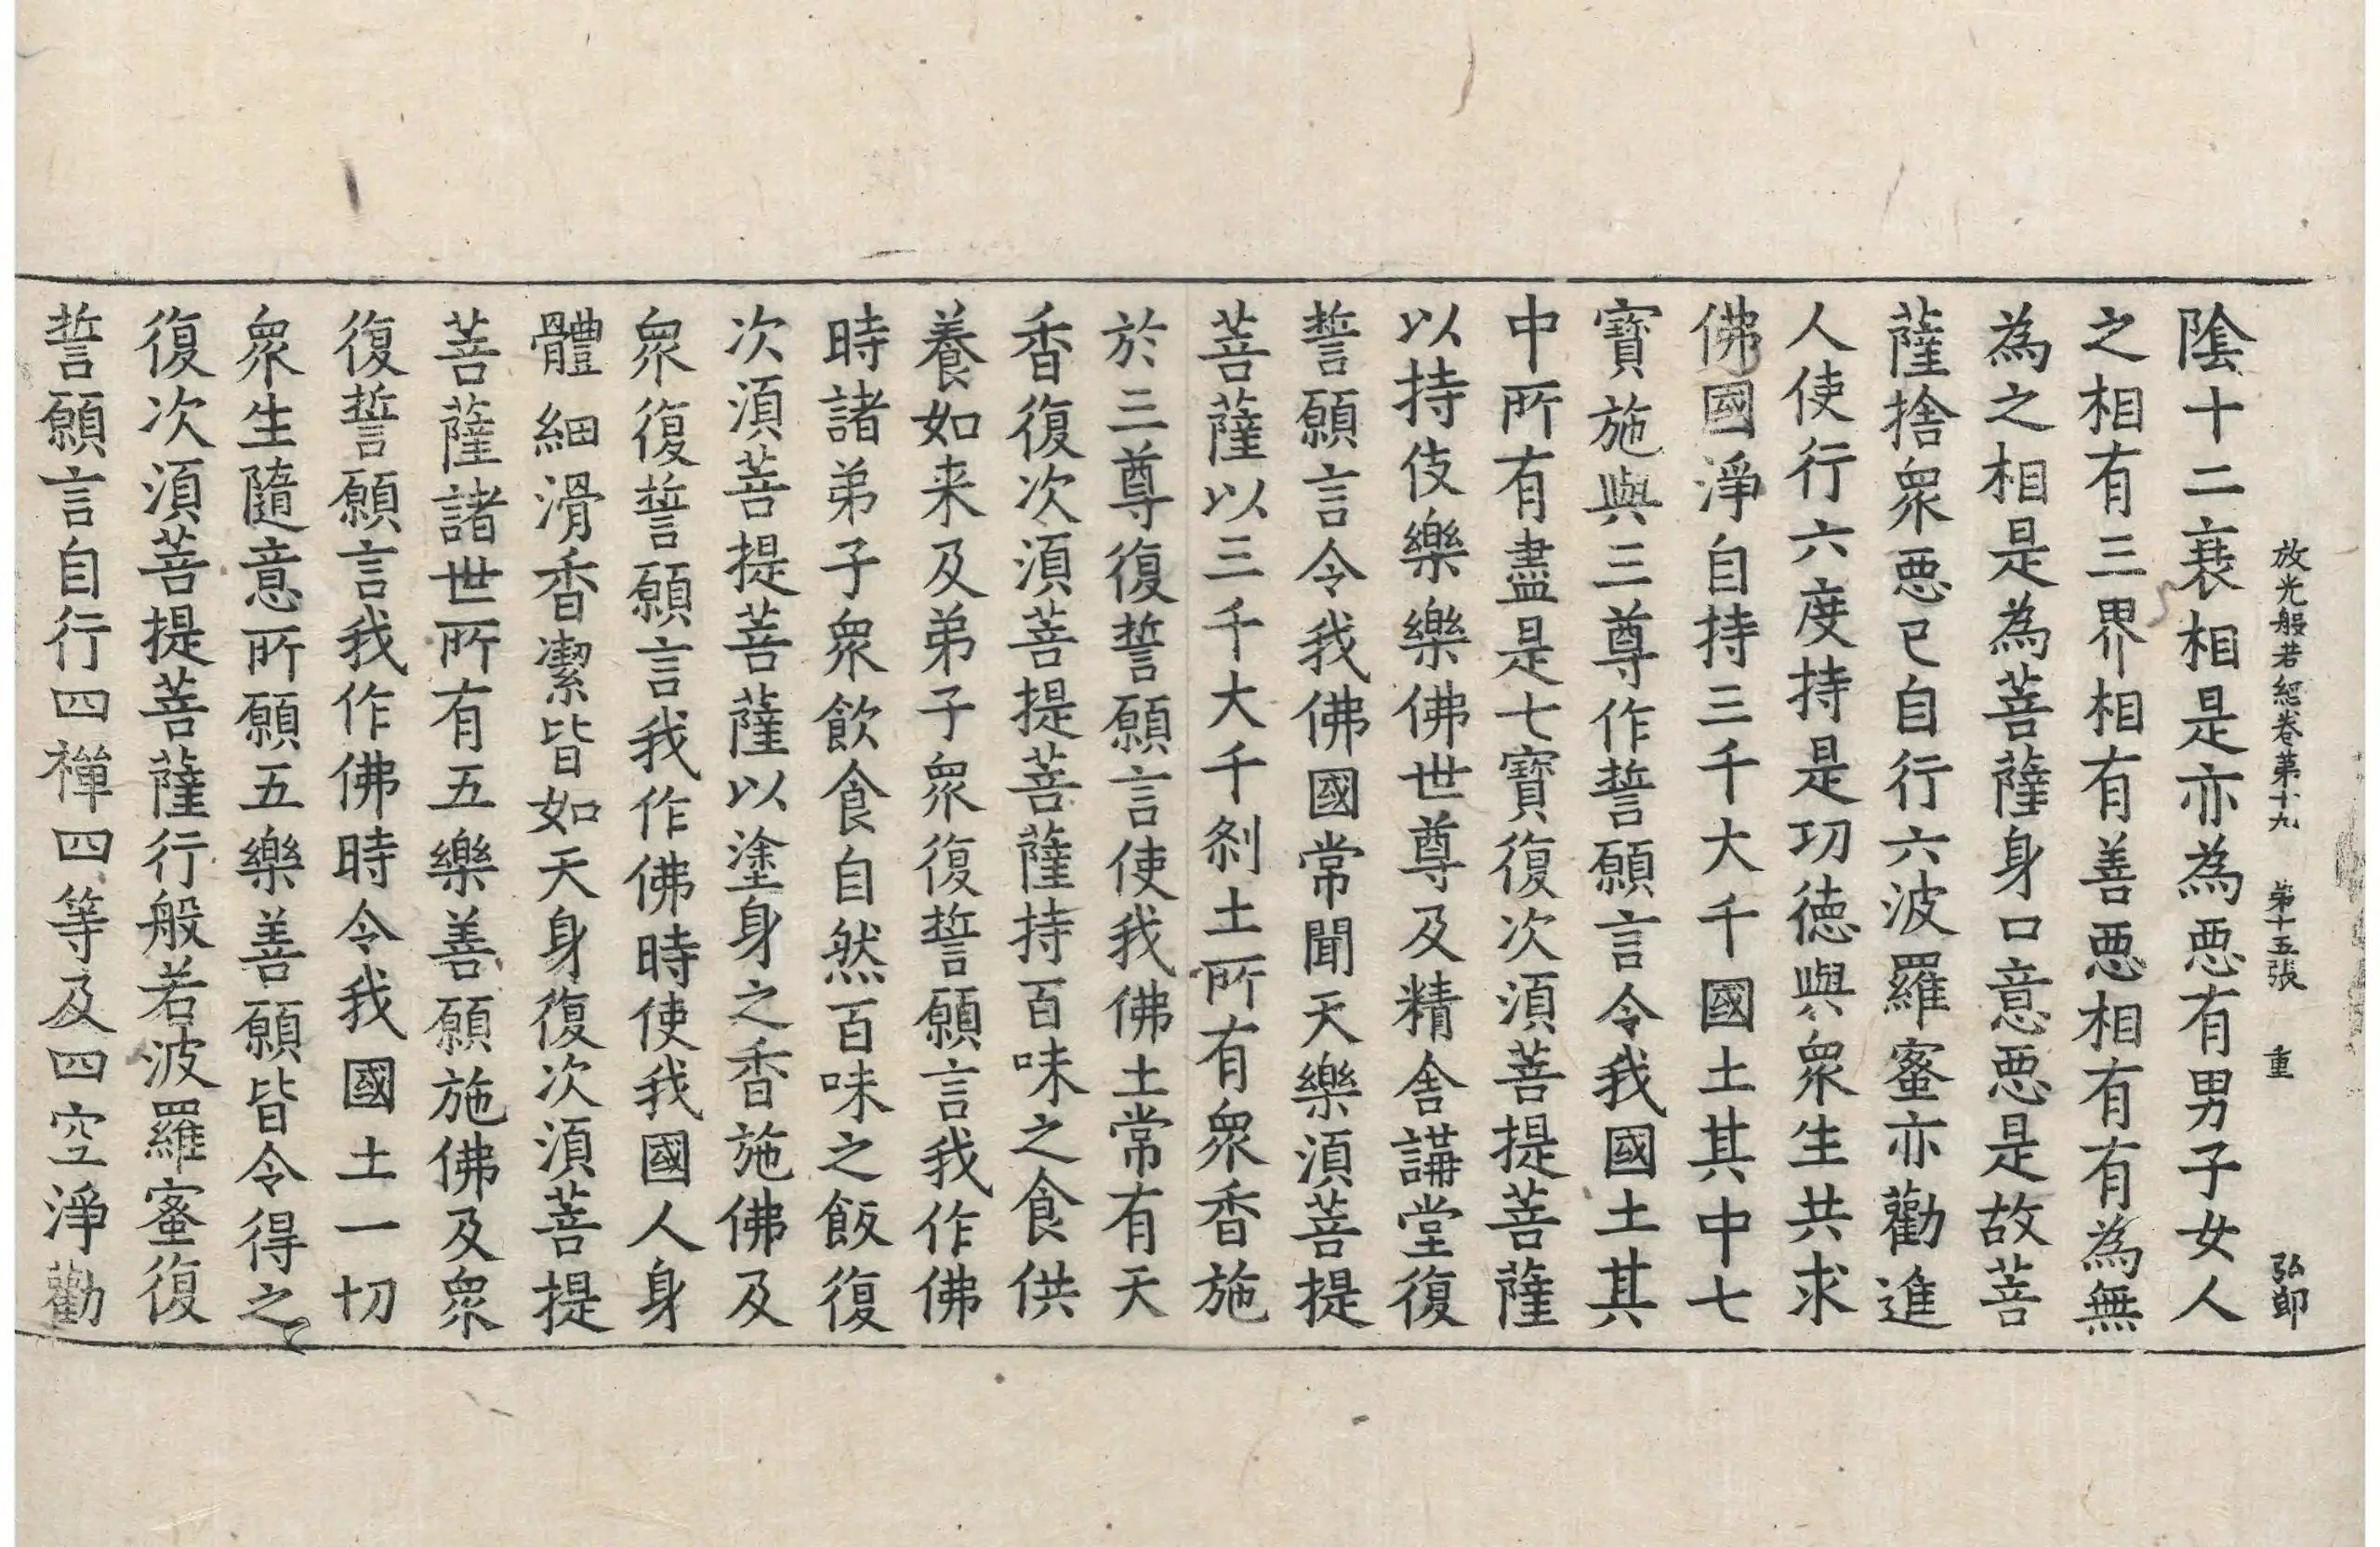 放光般若經卷第十九 第十五張 重 弘郎
陰十二衰相是亦為悪有男子女人
之相有三界相有善悪相有有為無
為之相是為菩薩身口意悪是故菩
薩捨衆悪已自行六波羅蜜亦勸進
人使行六度持是功德與衆生共求
佛國淨自持三千大千國土其中七
寶施與三尊作誓願言令我國土其
中所有盡是七寶復次湏菩提菩薩
以持伎樂樂佛世尊及精舍講堂復
誓願言令我佛國常聞天樂湏菩提
菩薩以三千大千刹土所有衆香施
於三尊復誓願言使我佛土常有天
香復次湏菩提菩薩持百味之食供
養如来及弟子衆復誓願言我作佛
時諸弟子衆飲食自然百味之飯復
次湏菩提菩薩以塗身之香施佛及
衆復誓願言我作佛時使我國人身
體細滑香潔皆如天身復次湏菩提
菩薩諸世所有五樂善願施佛及衆
復誓願言我作佛時令我國土一切
衆生隨意所願五樂善願皆令得之
復次湏菩提菩薩行般若波羅蜜復
誓願言自行四禪四等及四空淨勸